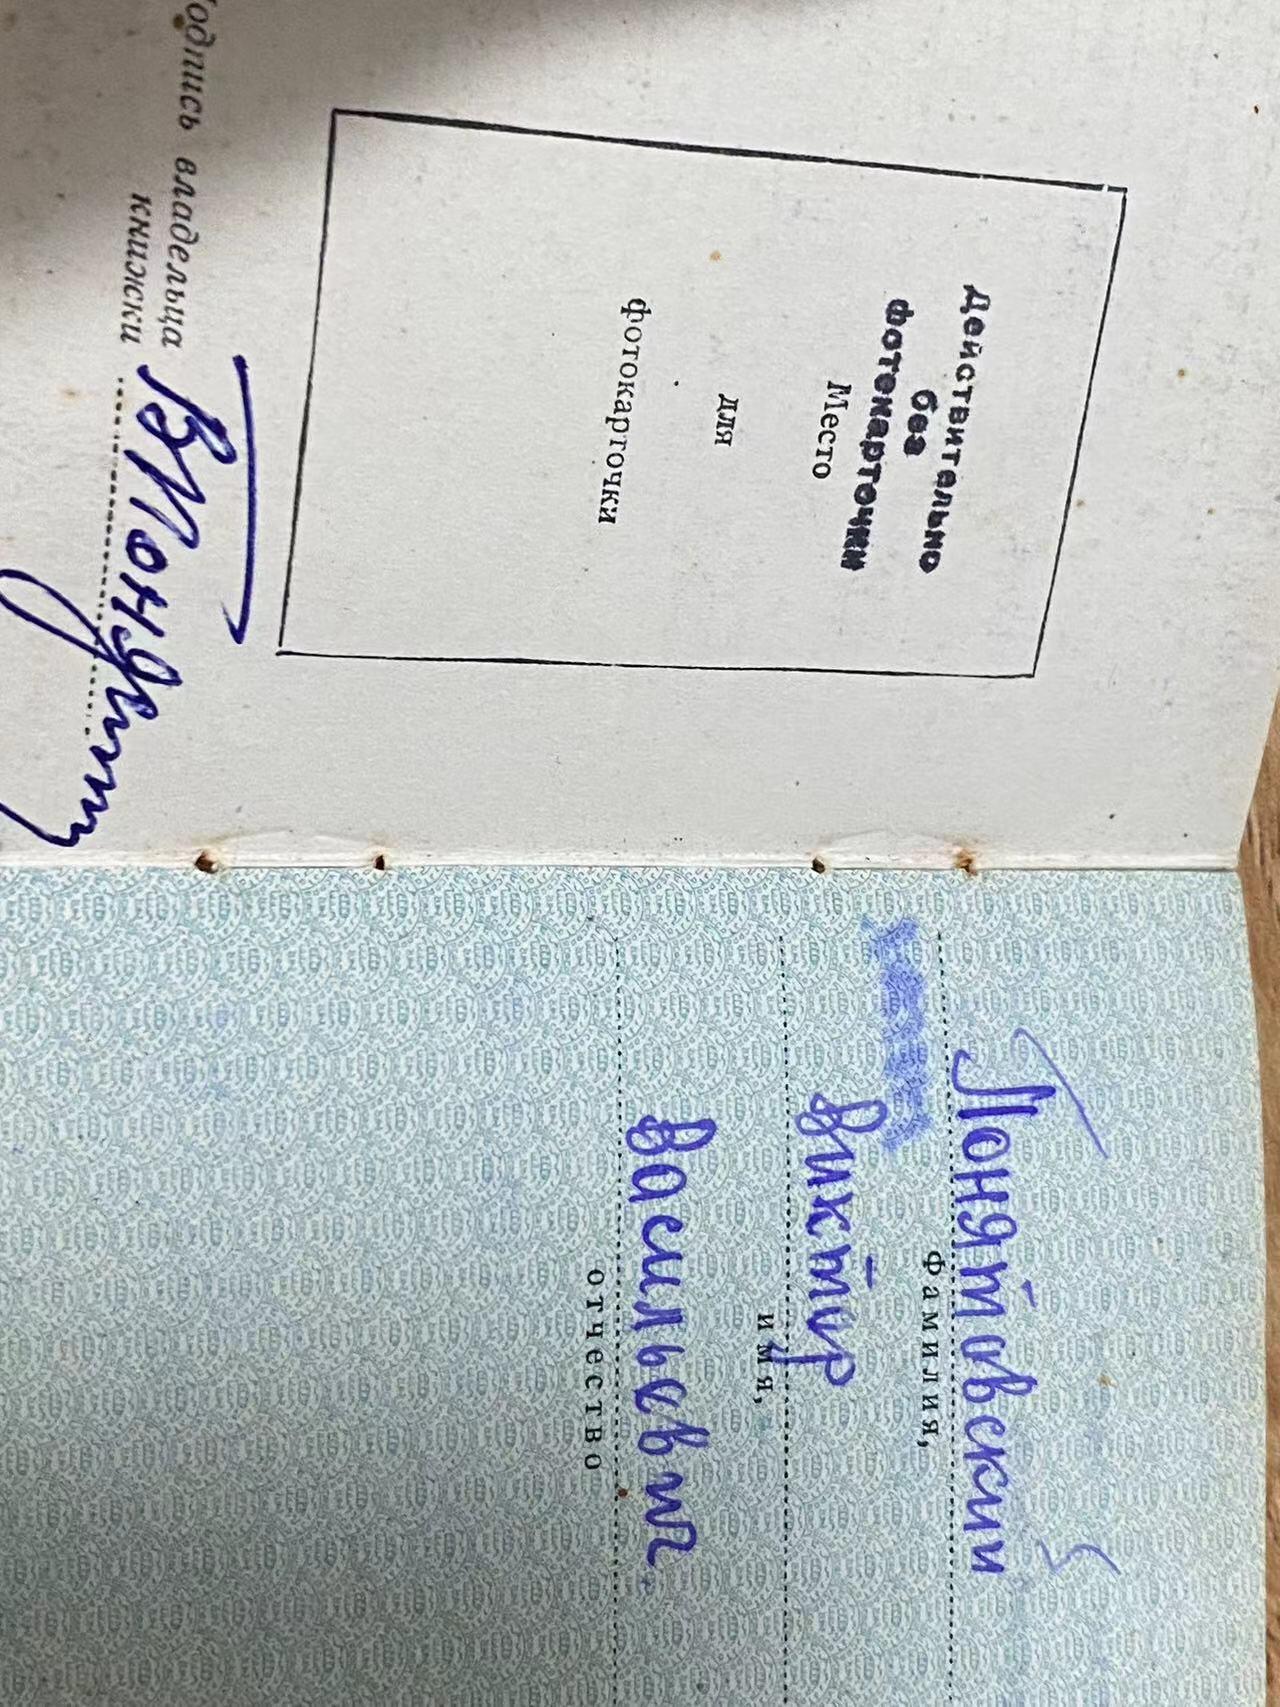 Действительно
без
фотокарточки
Место
для
фотокарточки
Подпись владельца
книжки
Понятовский
фамилия,
Виктор
имя,
Васильевич
отчество